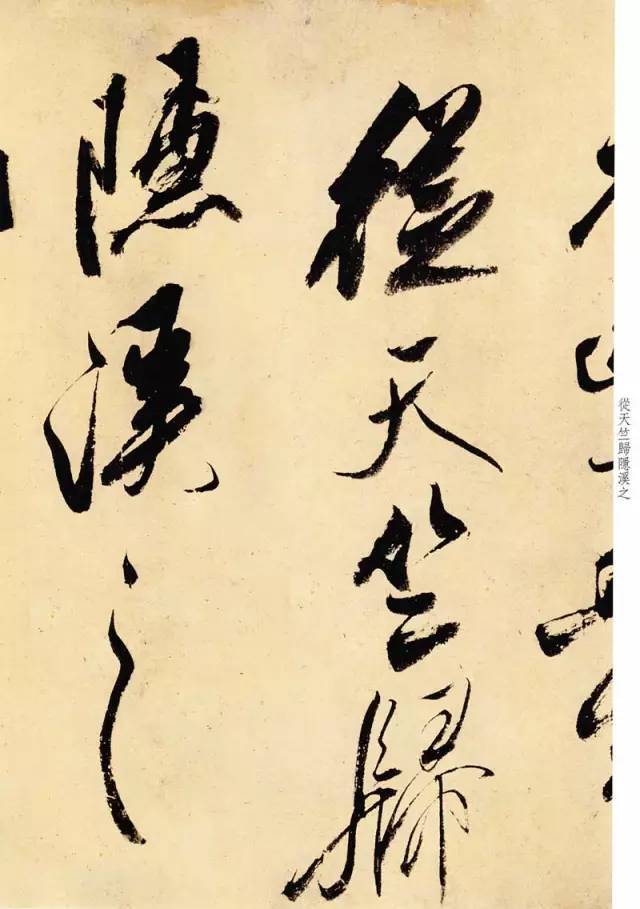 從天竺歸
隱溪之
從天竺歸隱溪之